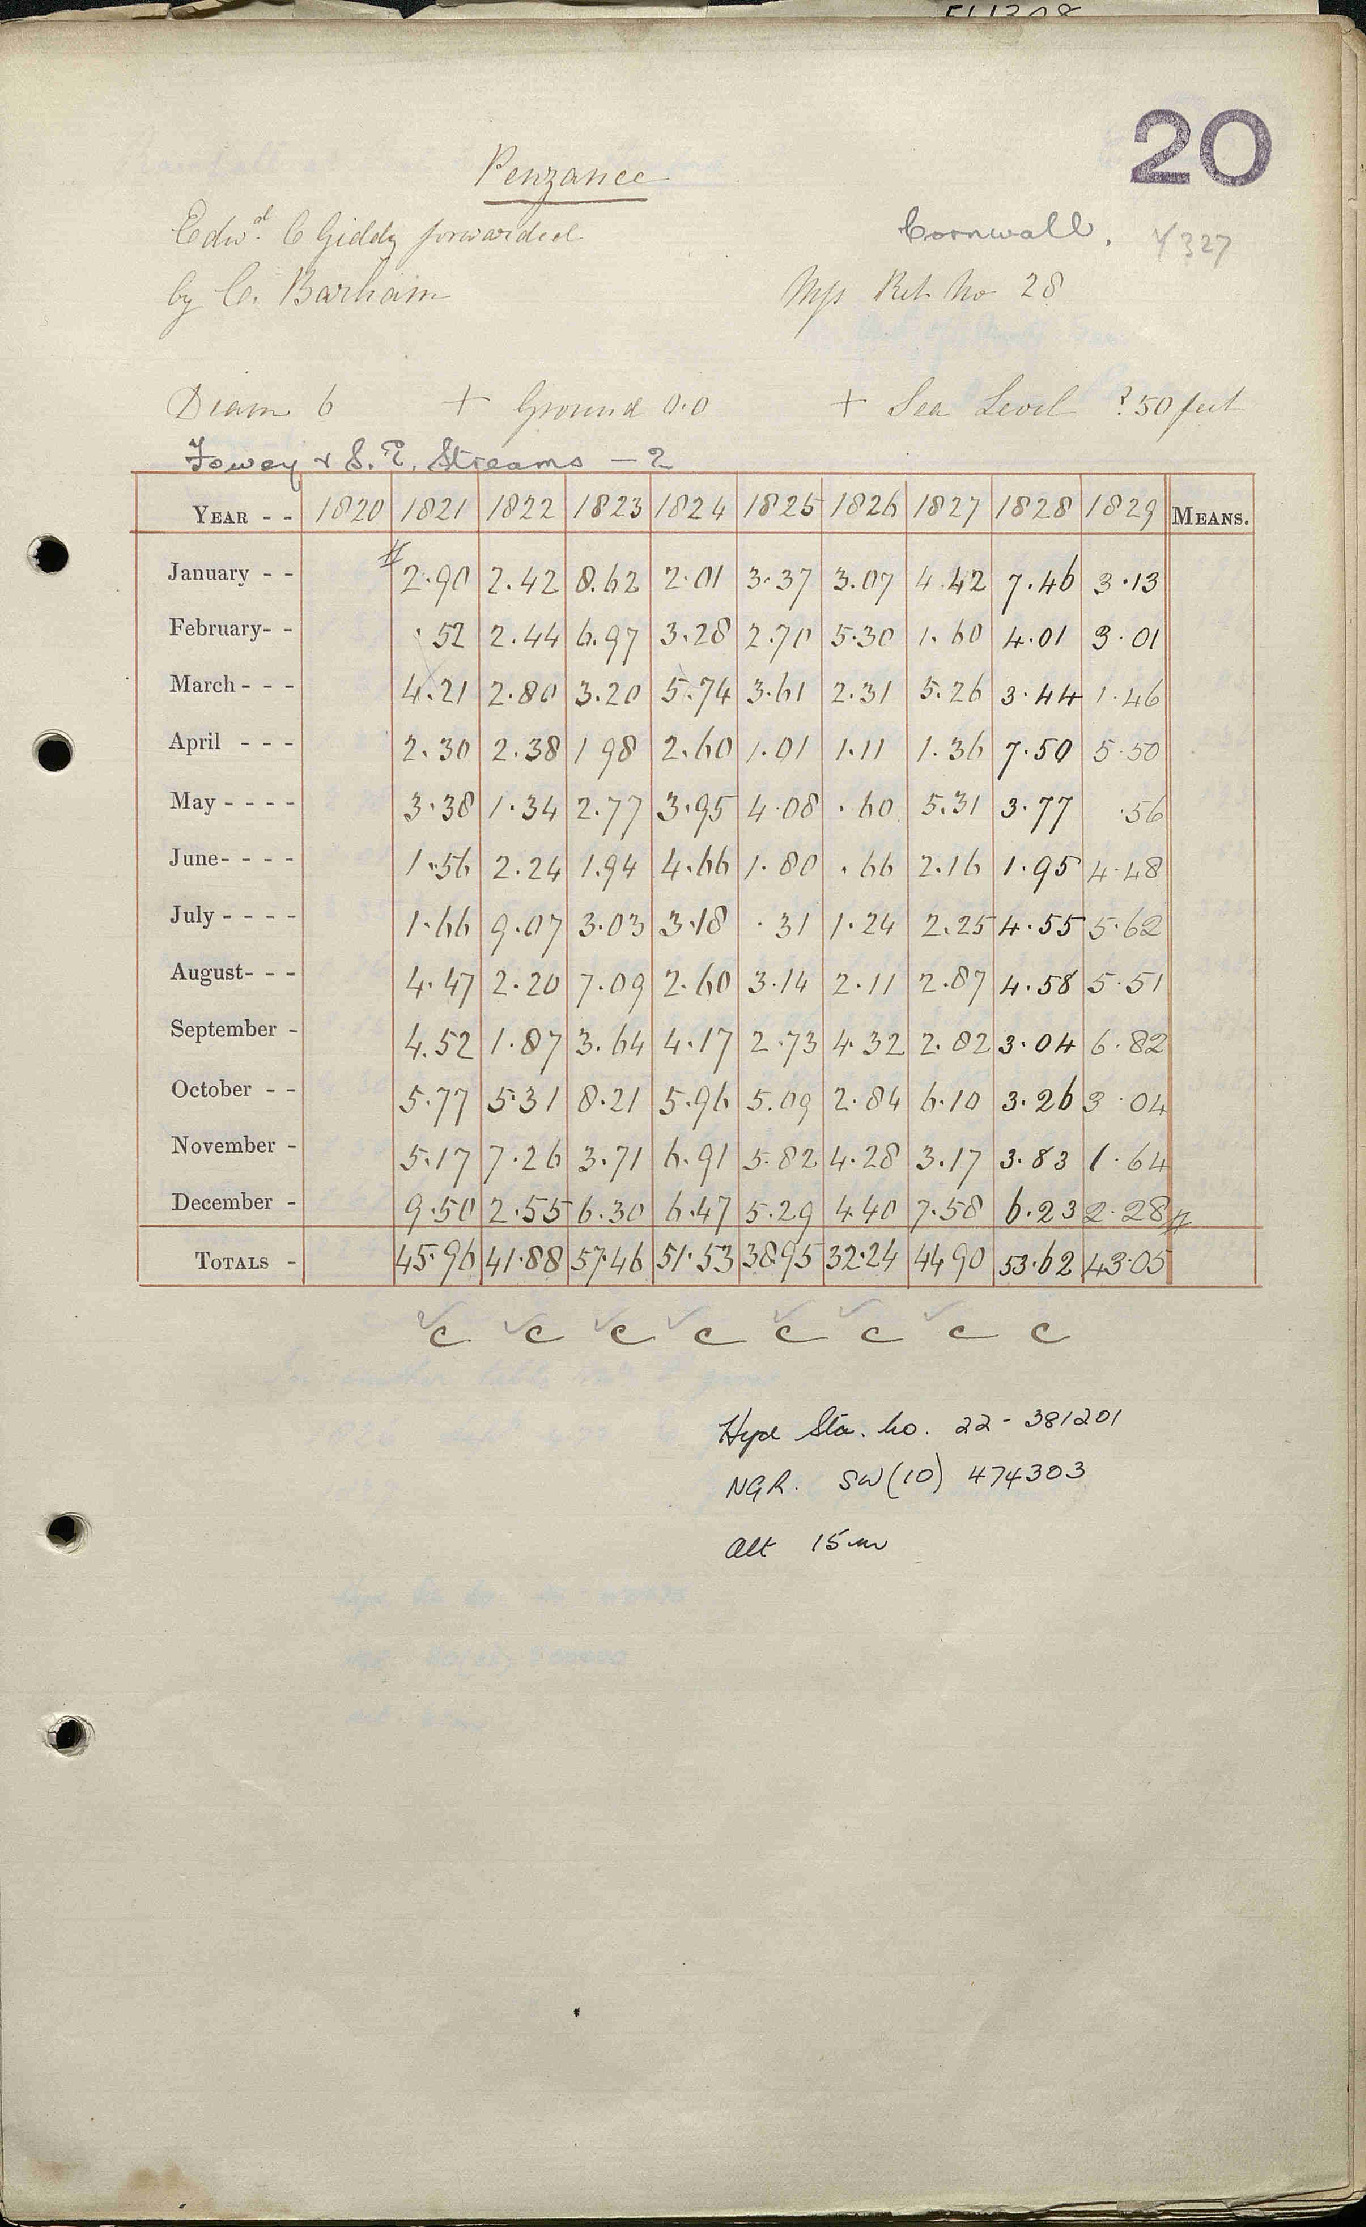 20
Penzance
Edwd. C Giddy forwarded
Cornwall.
by C. Barham
Mss Ret. No 28
Diam 6 + Ground 0.0 + Sea Level ? 50 feet
Fowey & S.E. Streams - 2
YEAR - - 1820 1821 1822 1823 1824 1825 1826 1827 1828 1829 MEANS.
January - - 2.90 2.42 8.62 2.01 3.37 3.07 4.42 7.46 3.13
February- - .52 2.44 6.97 3.28 2.70 5.30 1.60 4.01 3.01
March - - - 4.21 2.80 3.20 5.74 3.61 2.31 5.26 3.44 1.46
April - - - 2.30 2.38 1 98 2.60 1.01 1.11 1.36 7.50 5.50
May - - - - 3.38 1.34 2.77 3.95 4.08 .60 5.31 3.77 .56
June- - - - 1.56 2.24 1.94 4.66 1.80 .66 2.16 1.95 4.48
July - - - - 1.66 9.07 3.03 3.18 .31 1.24 2.25 4.55 5.62
August- - - 4.47 2.20 7.09 2.60 3.14 2.11 2.87 4.58 5.51
September - 4.52 1.87 3.64 4.17 2.73 4.32 2.82 3.04 6.82
October - - 5.77 5.31 8.21 5.96 5.09 2.84 6.10 3.26 3.04
November - 5.17 7.26 3.71 6.91 5.82 4.28 3.17 3.83 1.64
December - 9.50 2.55 6.30 6.47 5.29 4.40 7.58 6.23 2.28
TOTALS - 45.96 41.88 57.46 51.53 38.95 32.24 44 90 53.62 43.05
c c c c c c c c
Hyd Sta. No. 22 - 381201
NGR. SW(10) 474303
Alt 15m